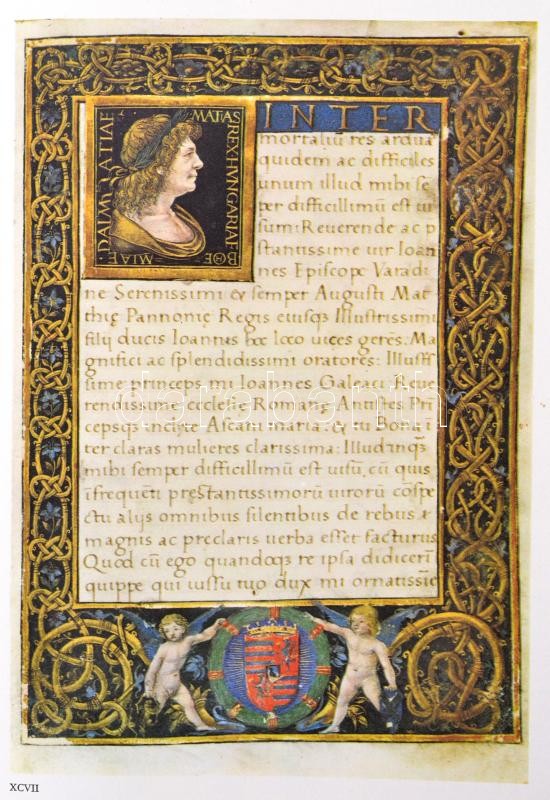 MATIAS REX HVNGARIAE BOE MIAE DALMATIAE
INTER
mortaliū res ardua
quidem ac difficiles
unum illud mihi se
per difficillimū est ui
sum: Reuerende ac p
stantissime uir Ioan
nes Episcope Varadi
ne Serenissimi & semper Augusti Mat
thię Pannonię Regis eiusq; Illustrissimi
filij ducis Ioannas hoc loco uices gerēs: Ma
gnifici ac splendidissimi oratores: Illustri
sime princeps mi Ioannes Galeaci Reue
rendissime ecclesię Romanę Antistes Prī
cepsq; inclyte Ascani maria: & tu Bona ī
ter claras mulieres clarissima: Illud inq̄
mihi semper difficillimū est uisū, cū quis
ī frequēti pręstantissimorū uirorū cōspe
ctu alijs omnibus silentibus de rebus
magnis ac preclaris uerba esset facturus
Quod cū ego quandoq; re ipsa didicerī
quippe qui iussu tuo dux mi ornatissie
darabanth
XCVII